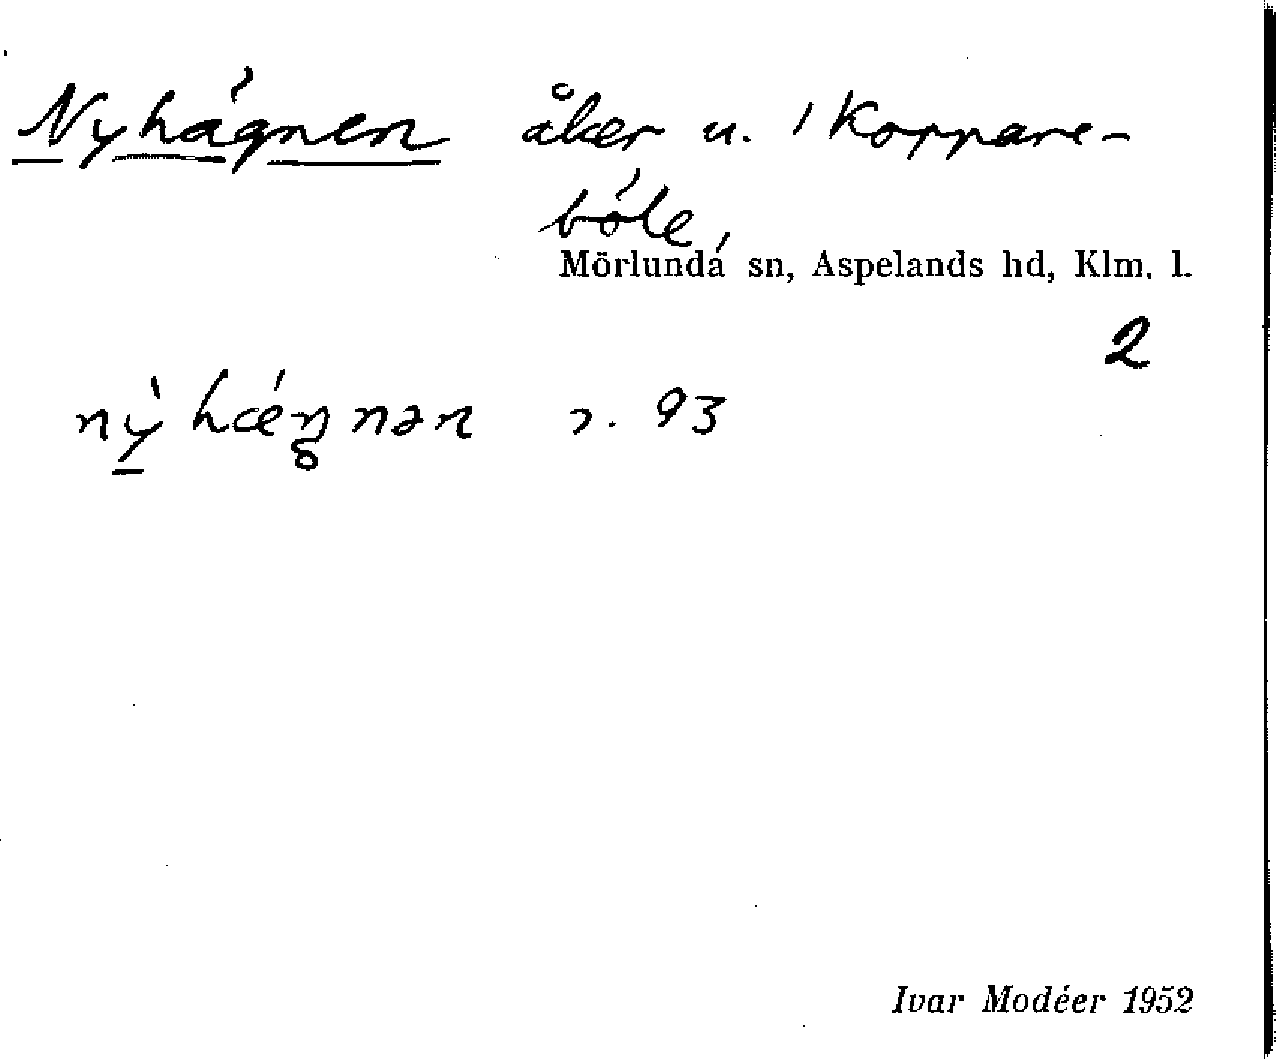 Nyhägnen åker u. 'Koppare-
bóle,
Mörlundá sn, Aspelands hd, Klm. l.
2
nỳhǽŋnən r. 93
Ivar Modéer 1952